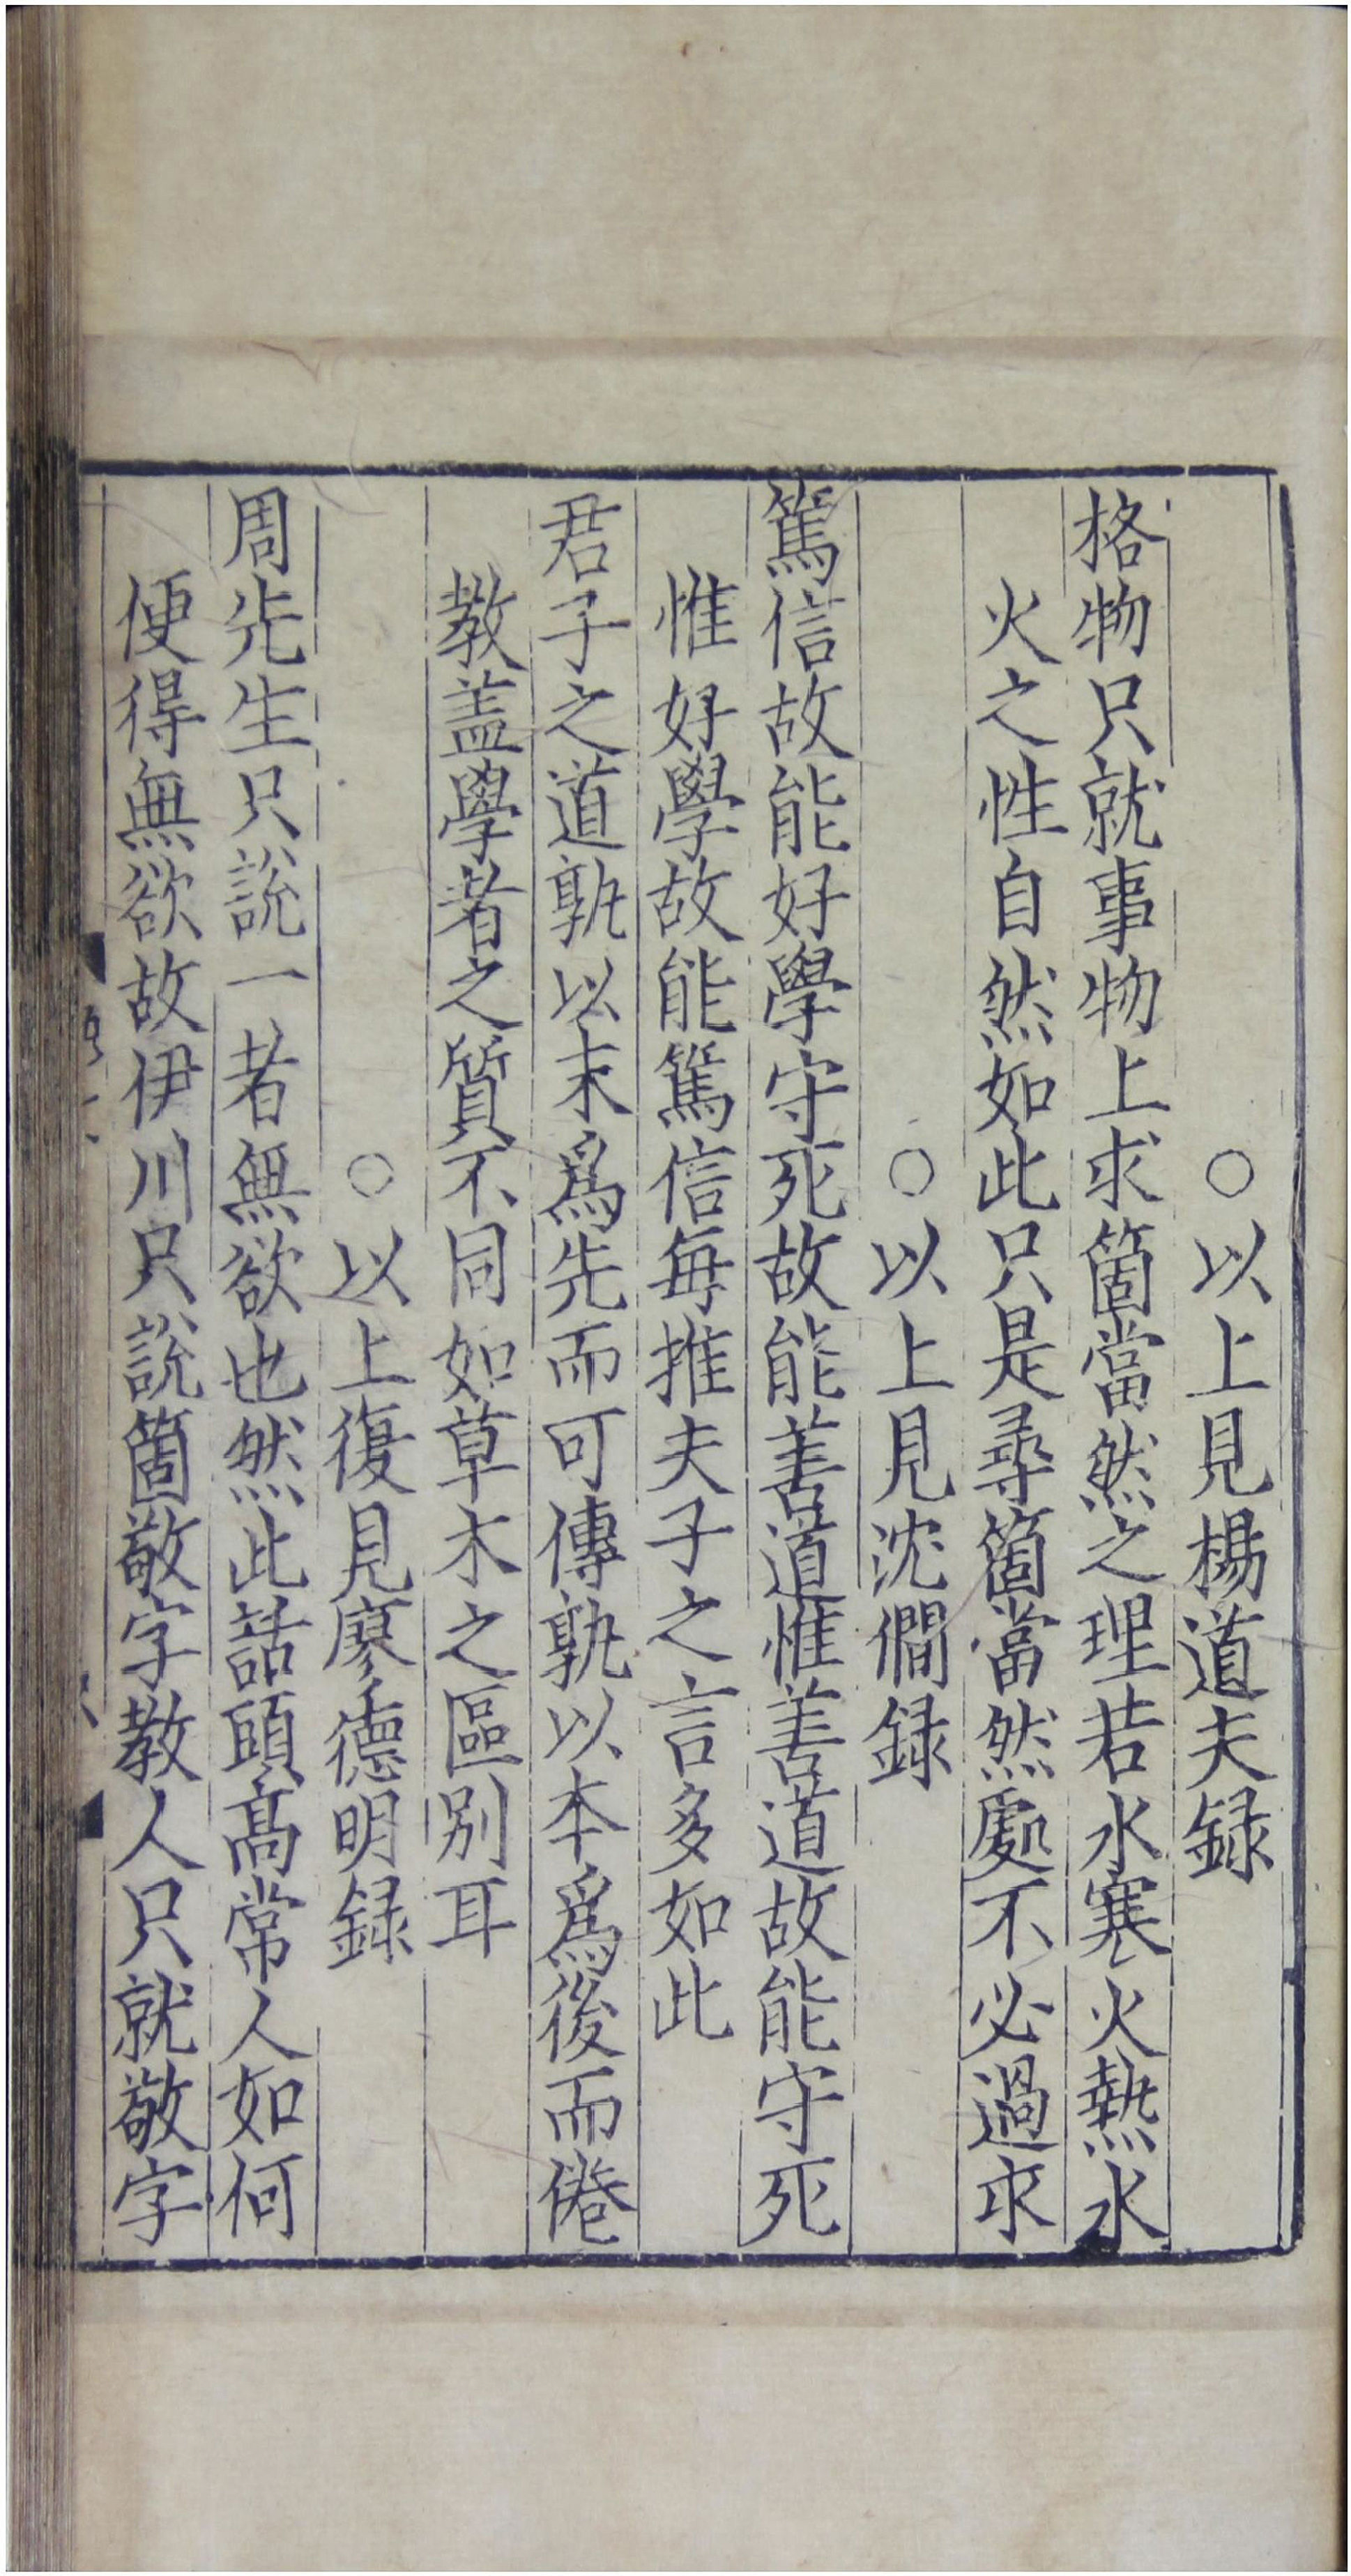 ○以上見楊道夫録
格物只就事物上求箇當然之理若水寒火熱水
火之性自然如此只是尋箇當然處不必過求
○以上見沈僩録
篤信故能好學守死故能善道惟善道故能守死
惟好學故能篤信每推夫子之言多如此
君子之道孰以末爲先而可傳孰以本爲後而倦
教盖學者之質不同如草木之區别耳
○以上復見廖德明録
周先生只說一者無欲也然此話頭髙常人如何
便得無欲故伊川只說箇敬字教人只就敬字